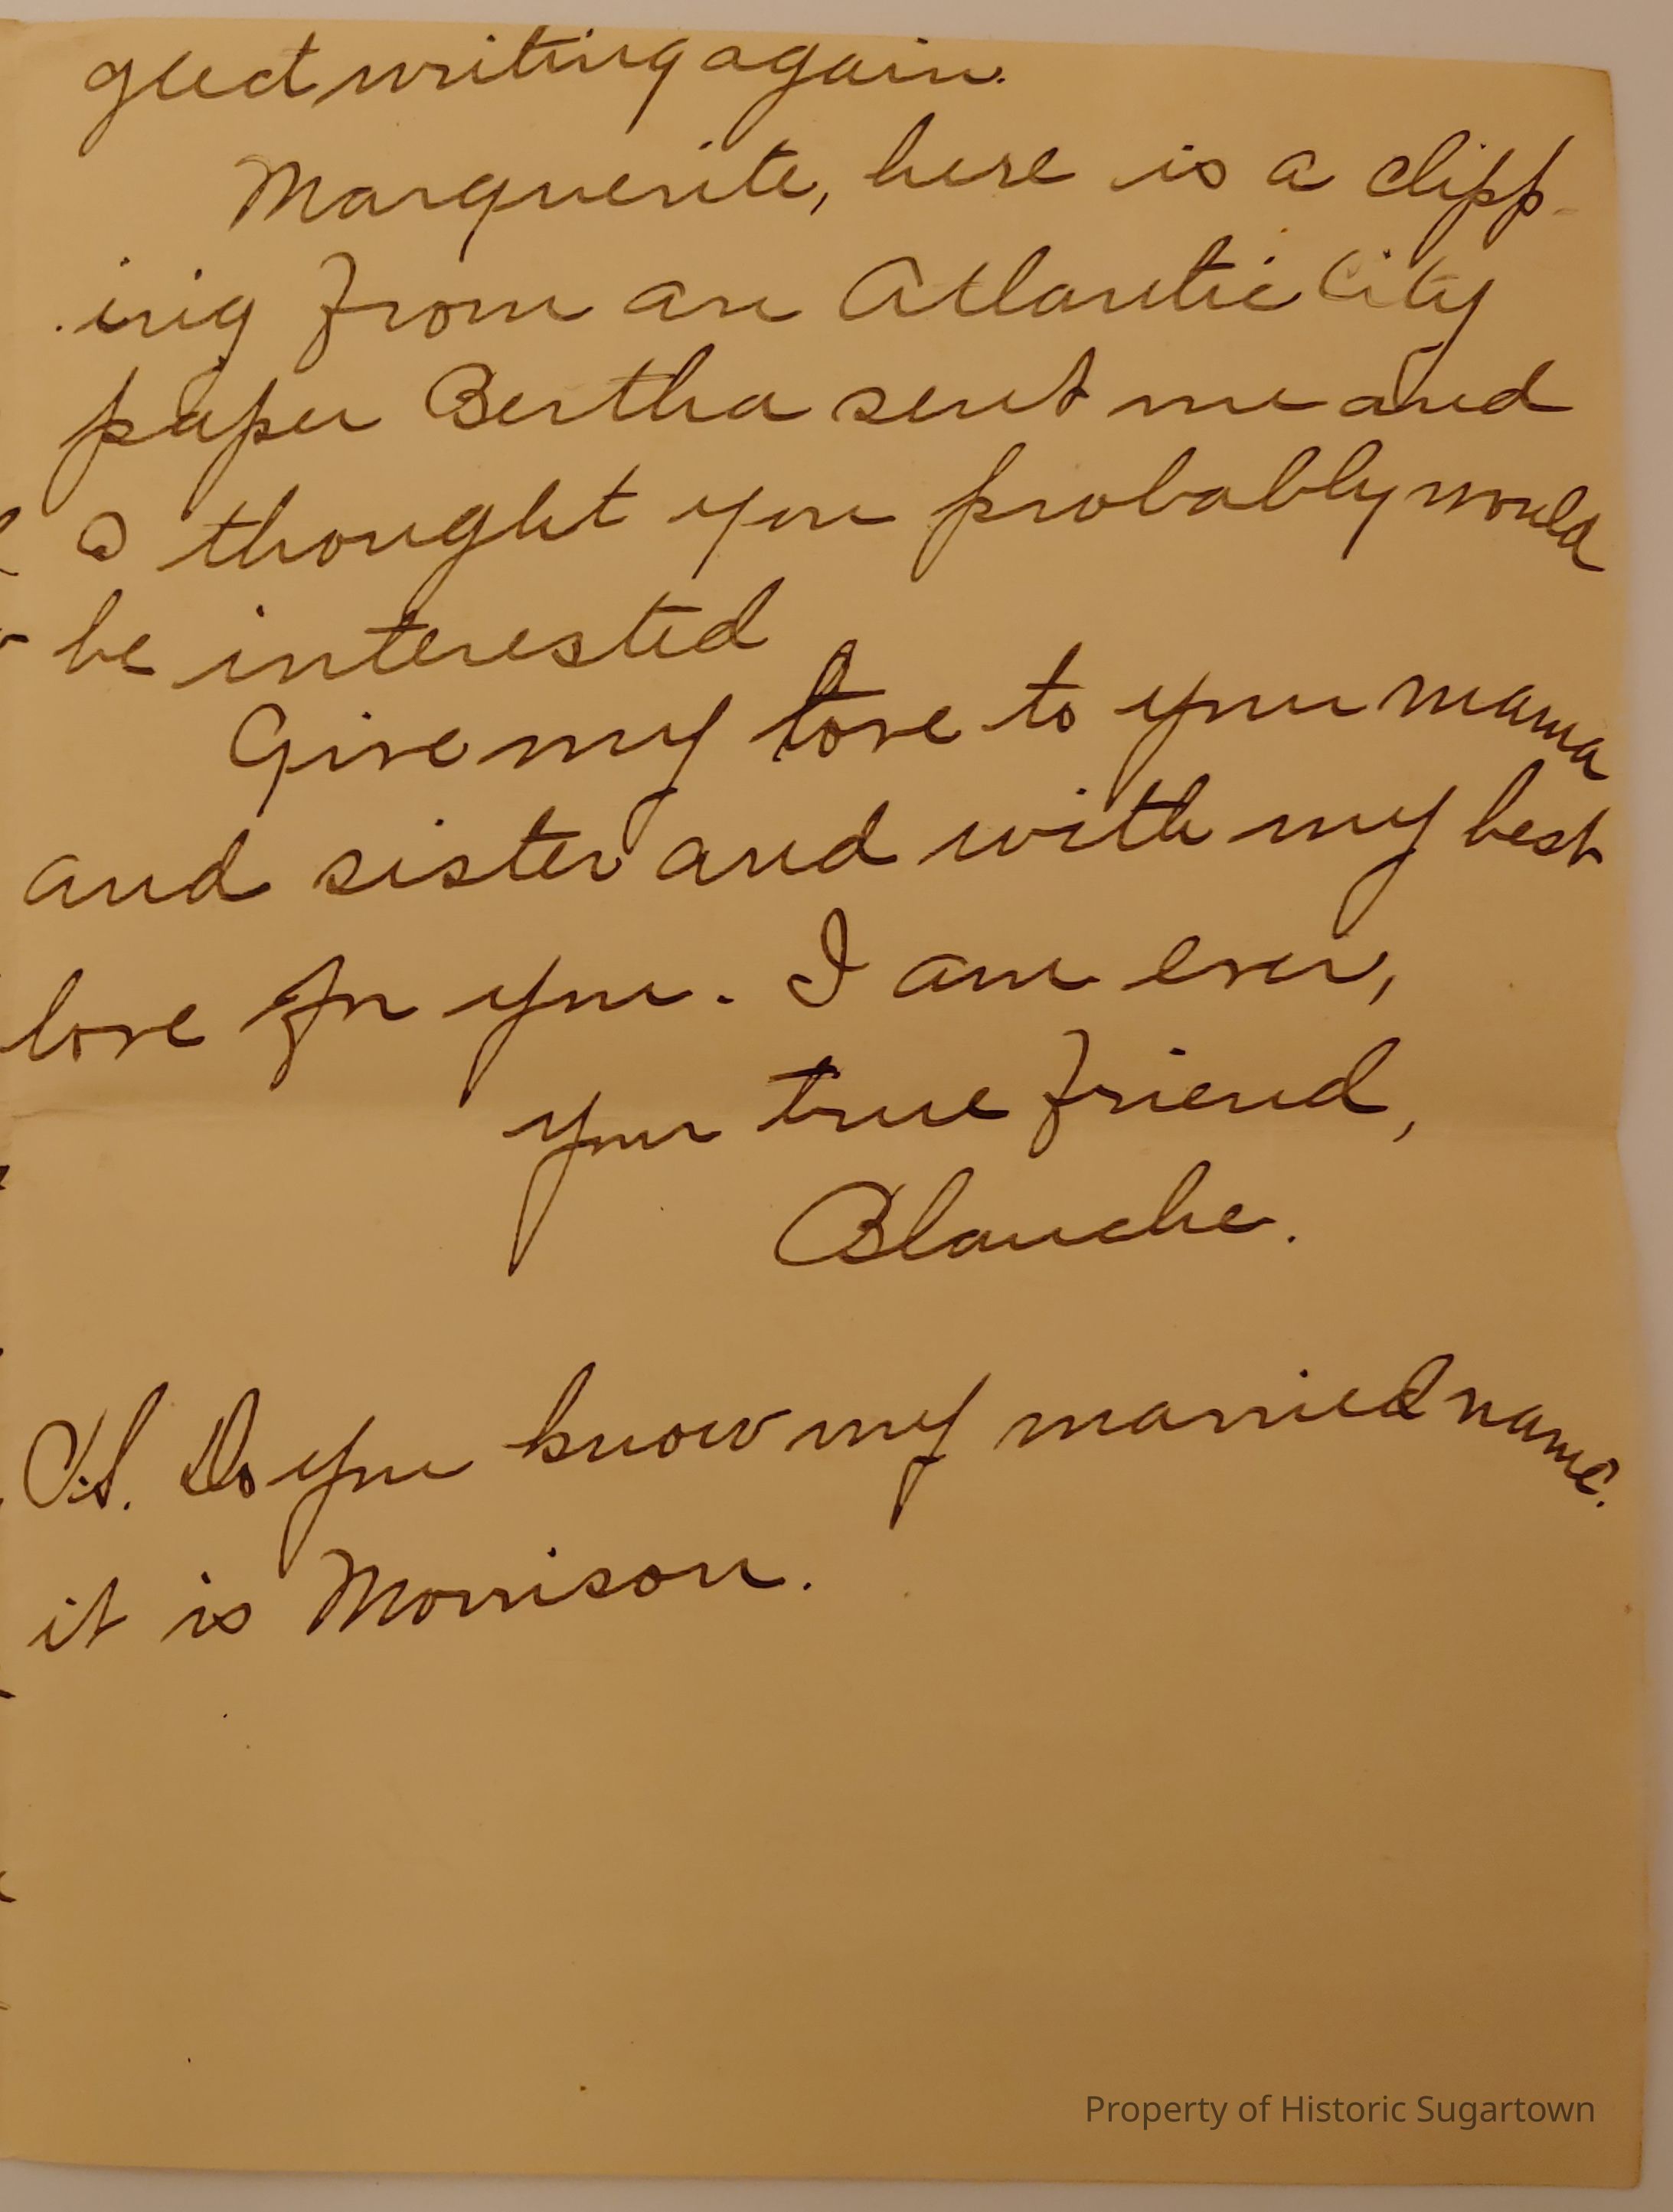 glect writing again.
Marguerite, here is a clipp-
ing from an Atlantic City
paper Bertha sent me and
I thought you probably would
be interested
Give my love to your mama
and sister and with my best
love for you. I am ever,
your true friend,
Blanche.
P.S. Do you know my married name.
it is Morrison.
Property of Historic Sugartown